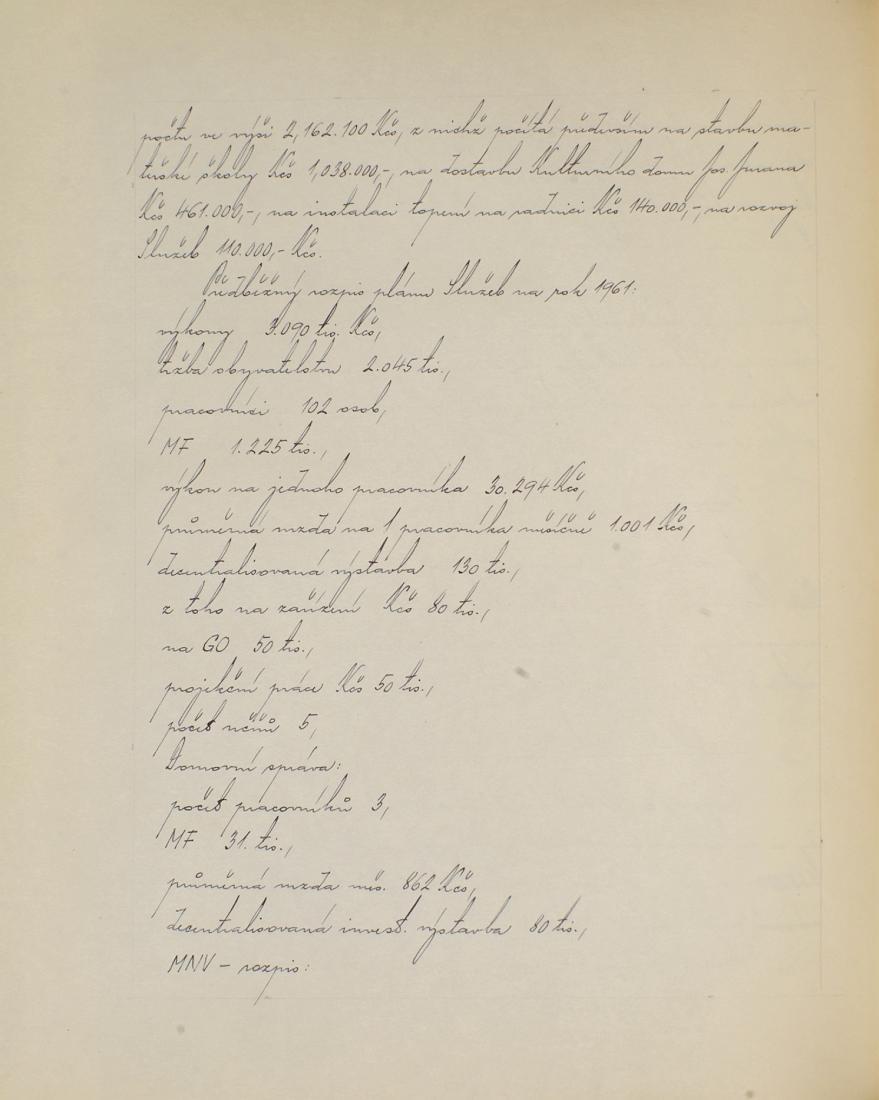 počtu ve výši 2,162.100 Kčs, z nichž počítá především na stavbu ma-
teřské školy Kčs 1,038.000,-, na dostavbu Kulturního domu Jos. Jurana
Kčs 461.000,-, na instalaci topení na radnici Kčs 140.000,-, na rozvoj
Služeb 110.000,- Kčs.
Předběžný rozpis plánu Služeb na rok 1961:
výkony 3.090 tis. Kčs,
tržba obyvatelstvu 2.045 tis.,
pracovníci 102 osob,
MF 1.225 tis.,
výkon na jednoho pracovníka 30.294 Kčs,
průměrná mzda na 1 pracovníka měsíčně 1.001 Kčs,
decentralisovaná výstavba 130 tis.,
z toho na zařízení Kčs 80 tis.,
na GO 50 tis.,
projekční práce Kčs 50 tis.,
počet učňů 5,
Domovní správa:
počet pracovníků 3,
MF 31. tis.,
průměrná mzda měs. 862 Kčs,
decentralisovaná invest. výstavba 80 tis.,
MNV - rozpis: